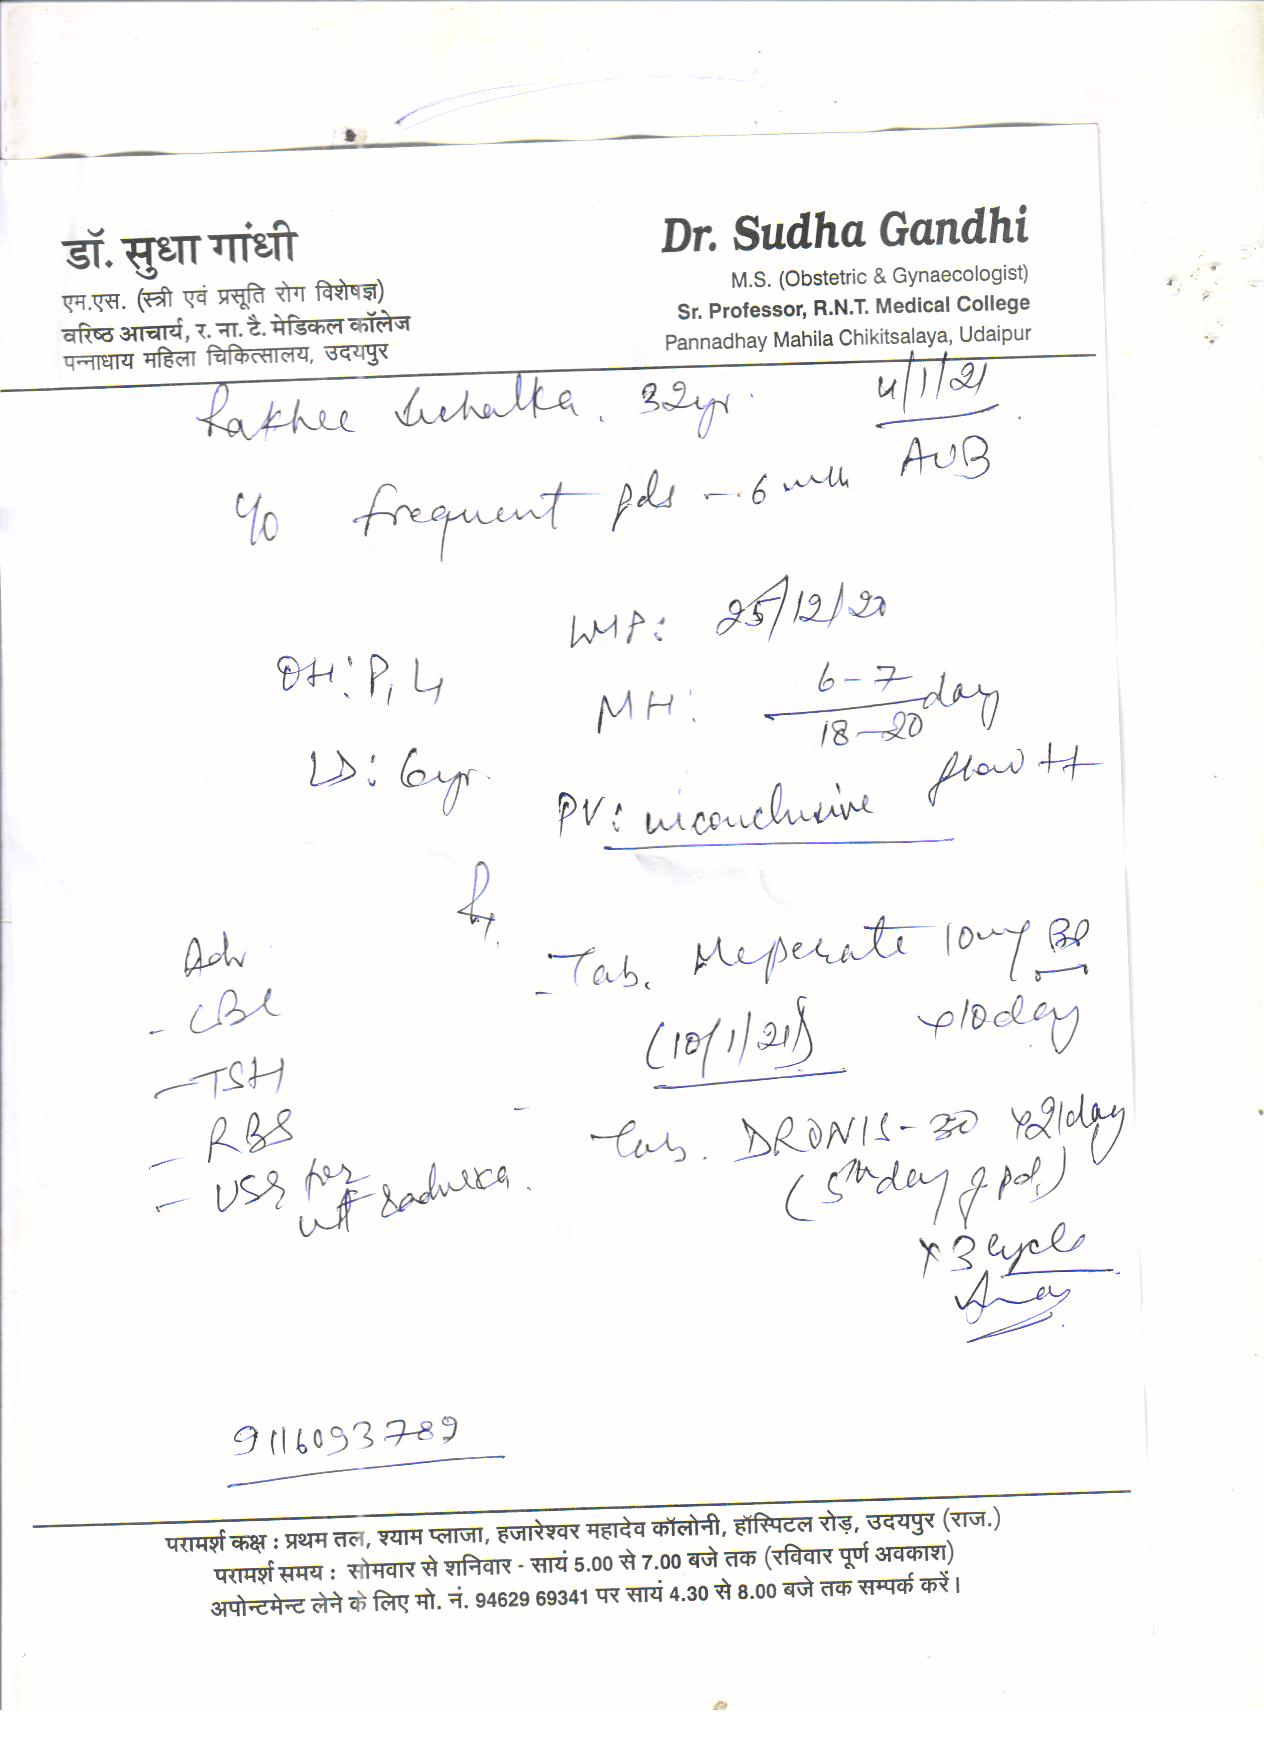 डॉ. सुधा गांधी
एम.एस. (स्त्री एवं प्रसूति रोग विशेषज्ञ)
वरिष्ठ आचार्य, र. ना. टै. मेडिकल कॉलेज
पन्नाधाय महिला चिकित्सालय, उदयपुर
Dr. Sudha Gandhi
M.S. (Obstetric & Gynaecologist)
Sr. Professor, R.N.T. Medical College
Pannadhay Mahila Chikitsalaya, Udaipur
Rakhee 32yr. 4/1/21
AUB
c/o frequent pds - 6 mth
LMP: 25/12/20
OH: P1 L1
MH: 6-7/18-20 day
flow ++
LD: 6yr.
PV: inconclusive
Rx
Adv
- CBC
- TSH
- RBS
- USG for
- Tab. Meperate 10mg BD
(10/1/21) x10day
- Tab. DRONIS-30 x21day
(5th day of pd.)
x 3 cycle
9116093789
परामर्श कक्ष : प्रथम तल, श्याम प्लाजा, हजारेश्वर महादेव कॉलोनी, हॉस्पिटल रोड़, उदयपुर (राज.)
परामर्श समय : सोमवार से शनिवार - सायं 5.00 से 7.00 बजे तक (रविवार पूर्ण अवकाश)
अपोन्टमेन्ट लेने के लिए मो. नं. 94629 69341 पर सायं 4.30 से 8.00 बजे तक सम्पर्क करें।